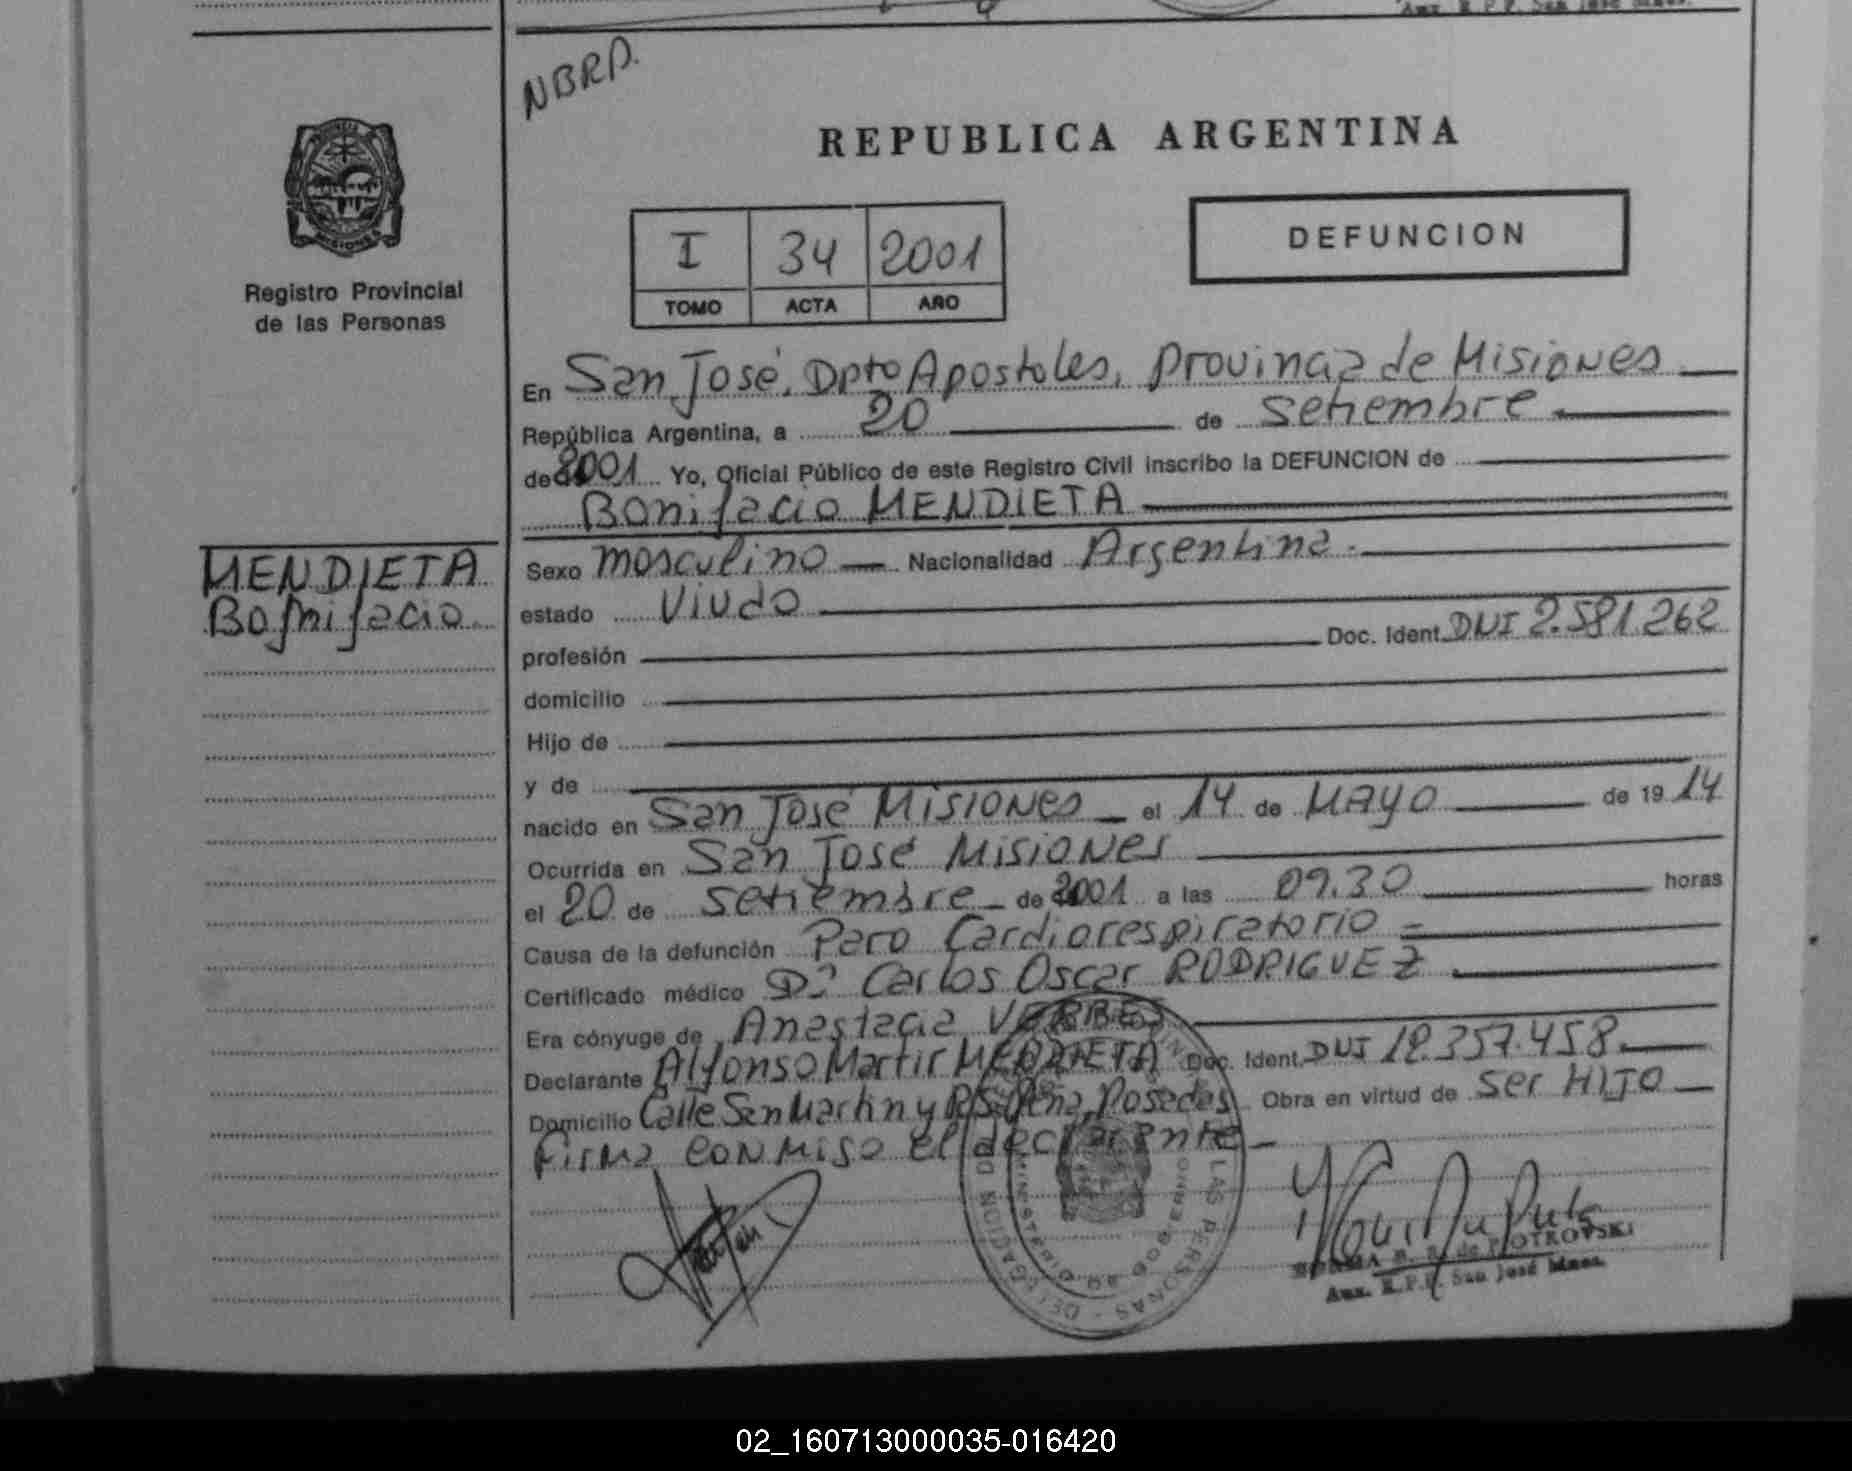 Aux. R.P.P. San José Mnes.
NBRP.
REPUBLICA ARGENTINA
I 34 2001
TOMO ACTA AÑO
DEFUNCION
Registro Provincial
de las Personas
En San José, Dpto Apostoles, provincia de Misiones
República Argentina, a 20 de setiembre
de 2001 Yo, Oficial Público de este Registro Civil inscribo la DEFUNCION de
Bonifacio MENDIETA
MENDIETA
Bonifacio
Sexo masculino Nacionalidad Argentina
estado Viudo
profesión Doc. Ident. DNI 2.581.262
domicilio
Hijo de
y de
nacido en San José Misiones el 14 de Mayo de 1914
Ocurrida en San José Misiones
el 20 de setiembre de 2001 a las 09.30 horas
Causa de la defunción Paro Cardiorespiratorio
Certificado médico Dr Carlos Oscar RODRIGUEZ
Era cónyuge de Anastacia VERBES
Declarante Alfonso Martir MENDIETA Doc. Ident. DNI 12.357.458
Domicilio Calle San Martin y Posadas Obra en virtud de ser HIJO
Firma conmigo el declarante
NORMA B. R. de PIOTROVSKI
Aux. R.P.P. San José Mnes.
02_160713000035-016420